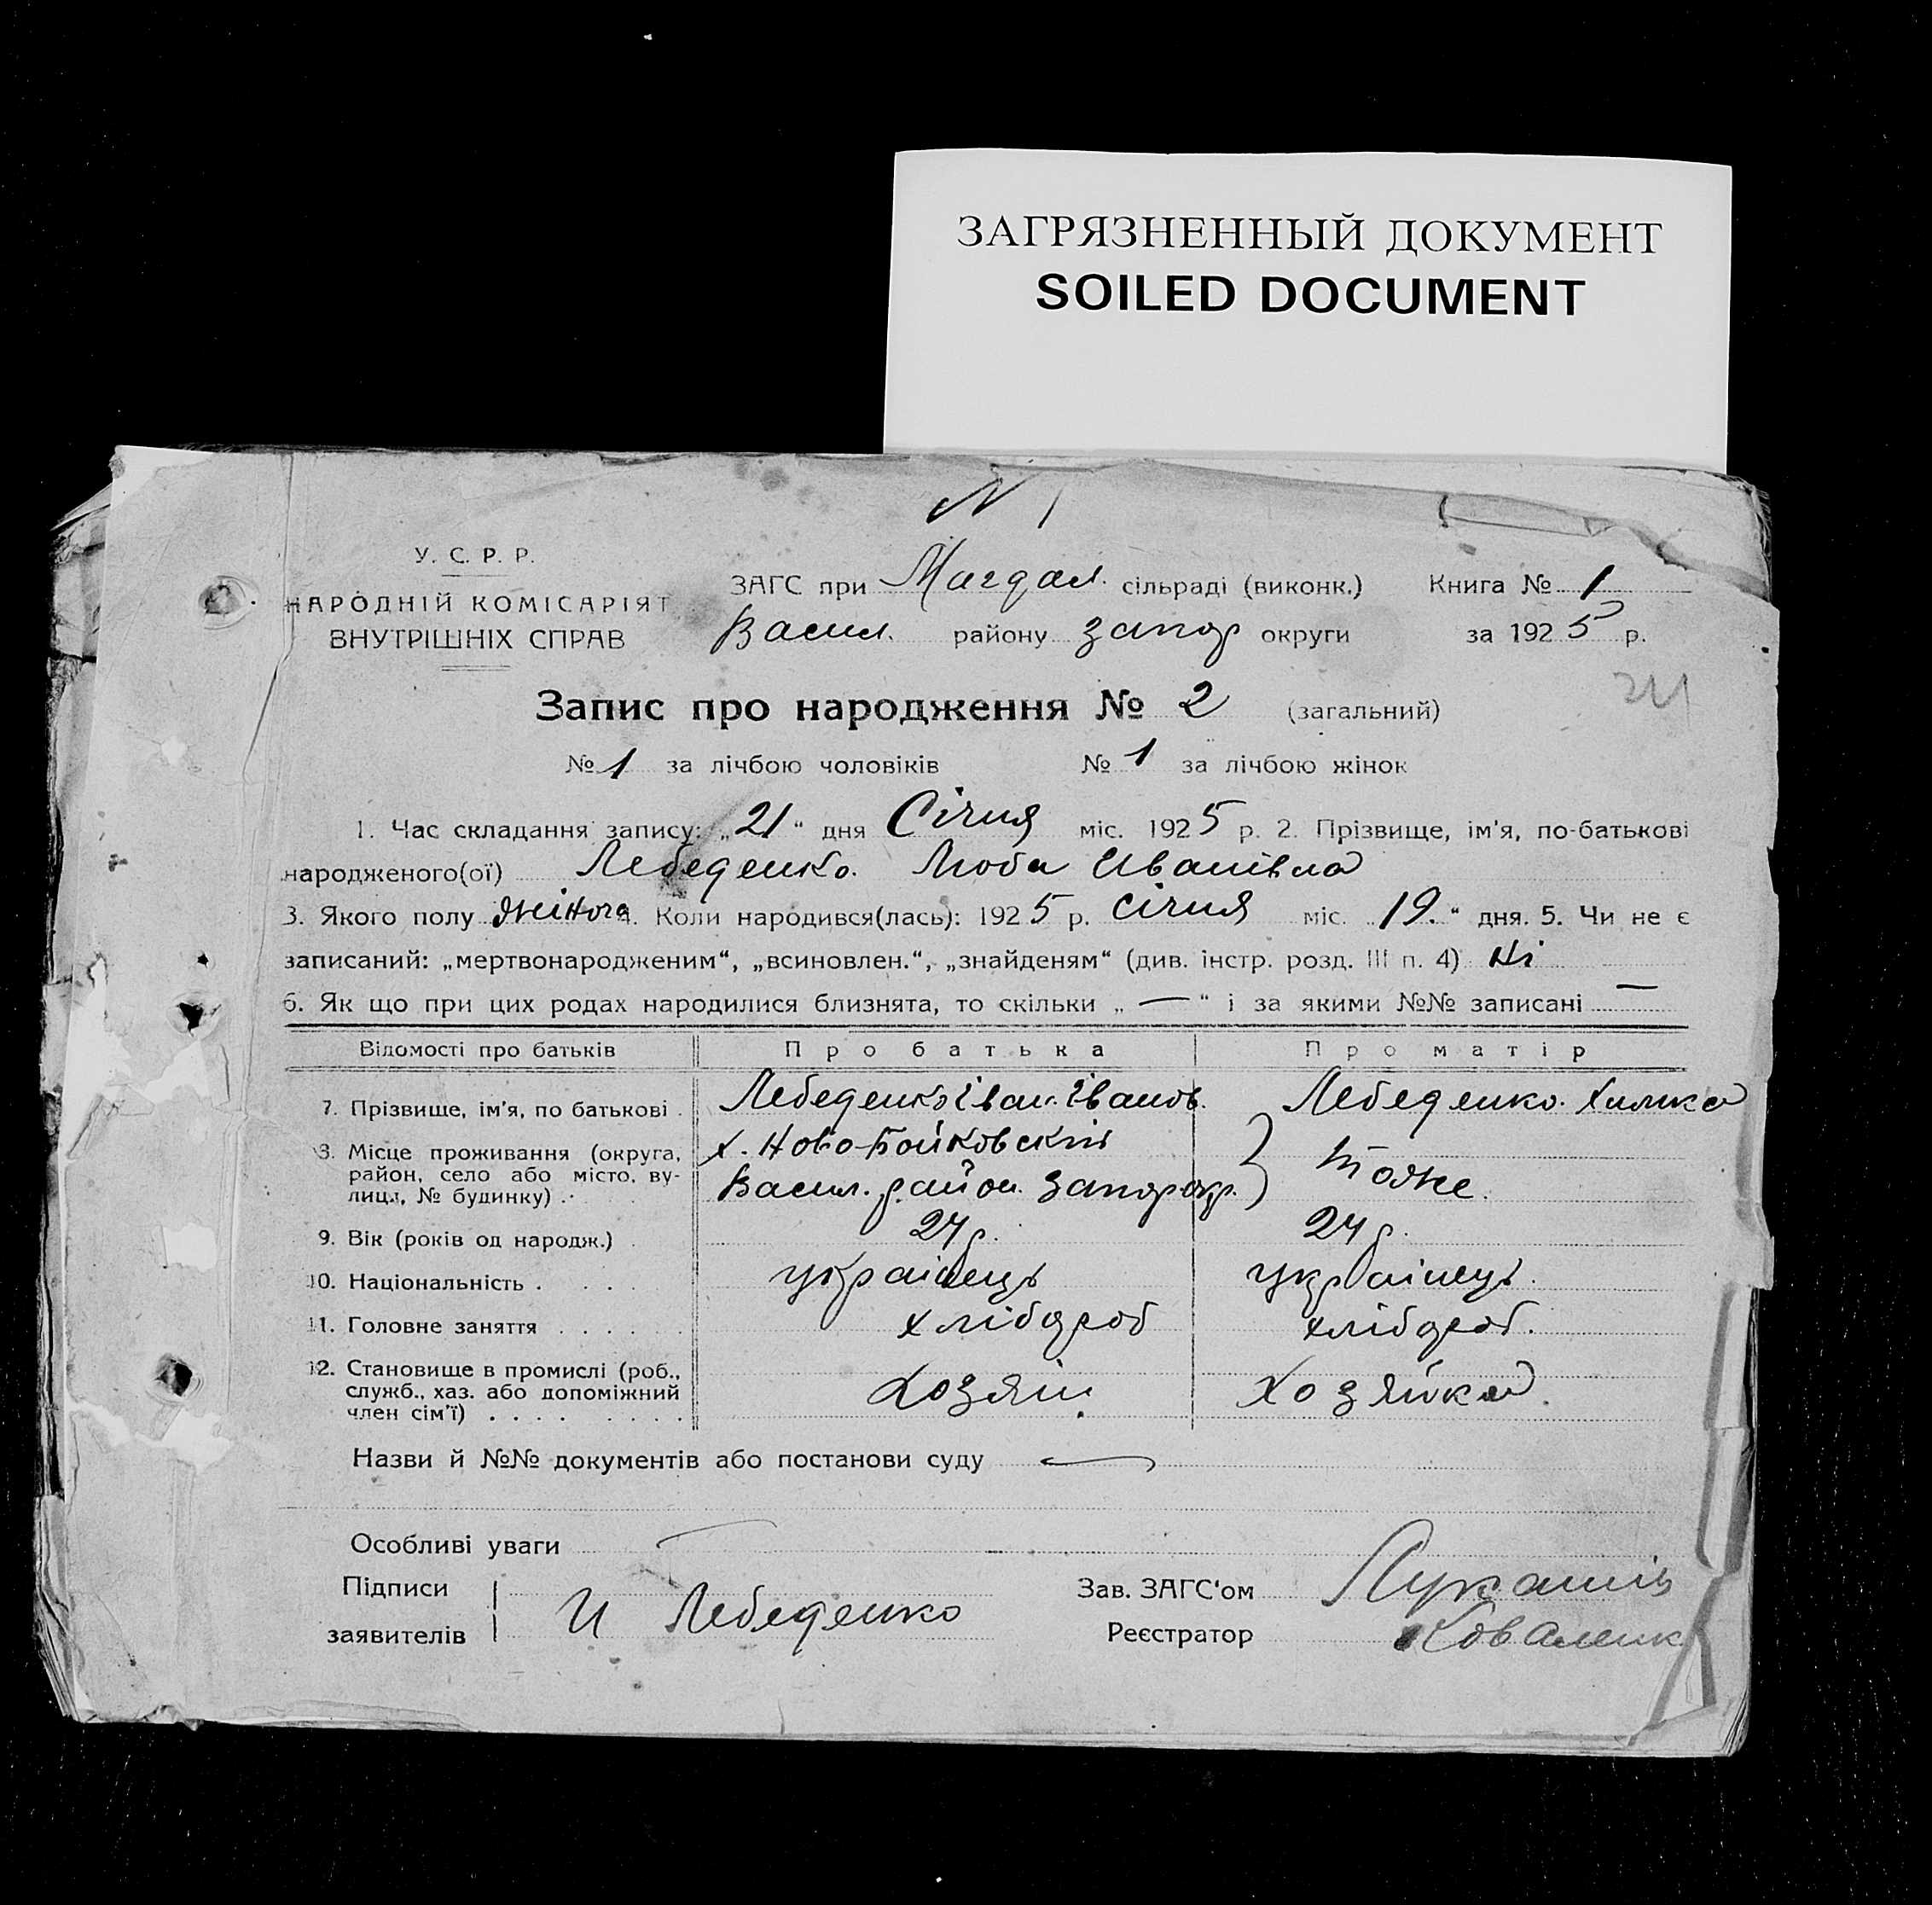 ЗАГРЯЗНЕННЫЙ ДОКУМЕНТ
SOILED DOCUMENT
N 1
У. С. Р. Р.
НАРОДНІЙ КОМІСАРІЯТ
ВНУТРІШНІХ СПРАВ
ЗАГС при Магдал. сільраді (виконк.) Книга № 1
Васил. району Запор округи за 1925 р.
Запис про народження № 2 (загальний)
№ 1 за лічбою чоловіків № 1 за лічбою жінок
1. Час складання запису: „21“ дня Січня міс. 1925 р. 2. Прізвище, ім'я, по-батькові
народженого(ої) Лебеденко. Люба Иванівна
3. Якого полу жіноча 4. Коли народився(лась): 1925 р. січня міс. 19.“ дня. 5. Чи не є
записаний: „мертвонародженим“, „всиновлен.“, „знайденям“ (див. інстр. розд. III п. 4) Ні
6. Як що при цих родах народилися близнята, то скільки „—“ і за якими №№ записані —
Відомості про батьків Про батька Про матір
7. Прізвище, ім'я, по батькові . Лебеденко Іван. Іванов. Лебеденко.
8. Місце проживання (округа, район, село або місто, вулиця, № будинку) . х. Ново-Бойковский
Васил. район. Запор окр. } тоже.
9. Вік (років од народж.) . 24 р. 24 р.
10. Національність . українець українець.
11. Головне заняття . хлібороб хлібороб.
12. Становище в промислі (роб., служб., хаз. або допоміжний член сім'ї) . хозяін. хозяйка.
Назви й №№ документів або постанови суду —
Особливі уваги —
Підписи заявителів И Лебеденко
Зав. ЗАГС'ом
Реєстратор Коваленк